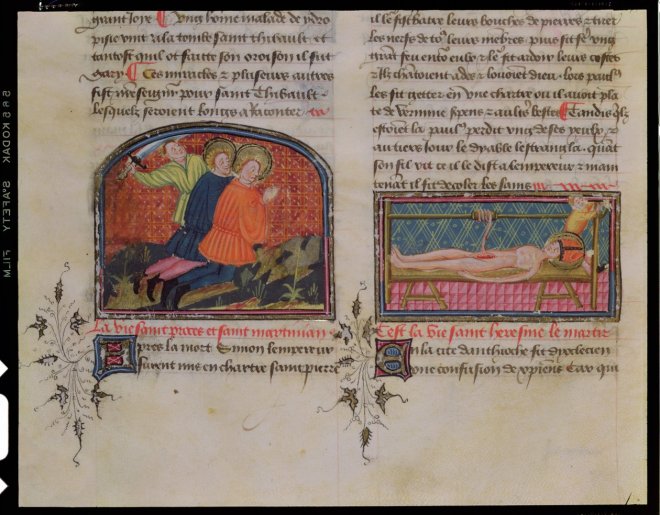 grant joye Ung home malade de ydro
pisie vint a la tombe saint Thibault et
tantost quil ot faicte son oroison il fut
gary Ces miracles et plusieurs autres
fist nreseigneur pour saint Thibault
lesquelz seroient longs a raconter
La vie saint proces et saint martinian
pres la mort Simon lempereur
furent mis en chartre saint pierre
il le fist batre leurs bouches de pierres et tirer
les nerfs de leurs membres puis fit ung
grant feu entour eulx et le fit ardoir leurs costes
et ilz chantoient et louoient dieu lors paulin
les fit getter en une chartre ou il avoit
de vermine et aultres bestes Tandis quilz
estoient la paulin perdit ung de ses yeulx
au tiers jour le dyable lestrangla quant
son fil vit ce il le dist a lempereur et main
tenant il fit decoler les sains
Cest la vie saint heresme le martir
n la cite danthioche fit dyoclecien
une confusion de xpiens Car qui
SAFETY FILM
KODAK